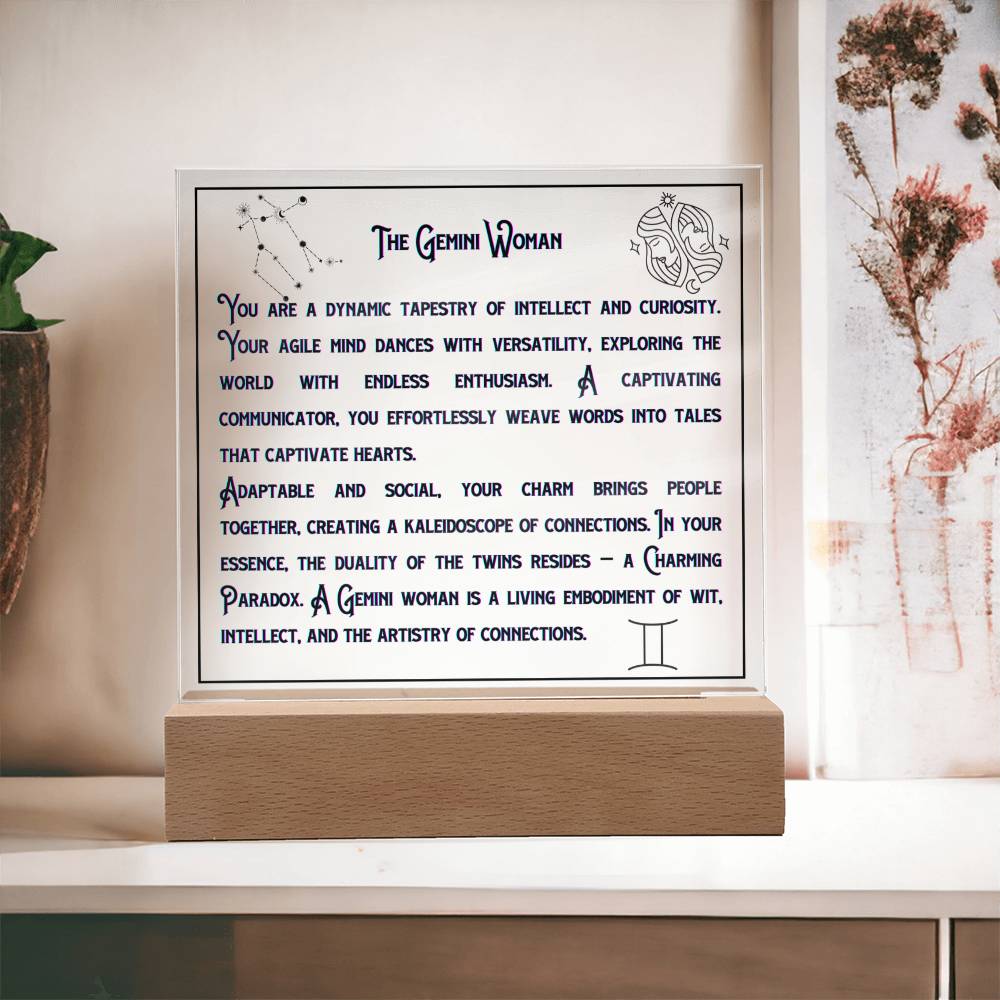 The Gemini Woman
You are a dynamic tapestry of intellect and curiosity.
Your agile mind dances with versatility, exploring the
world with endless enthusiasm. A captivating
communicator, you effortlessly weave words into tales
that captivate hearts.
Adaptable and social, your charm brings people
together, creating a kaleidoscope of connections. In your
essence, the duality of the twins resides – a Charming
Paradox. A Gemini woman is a living embodiment of wit,
intellect, and the artistry of connections.